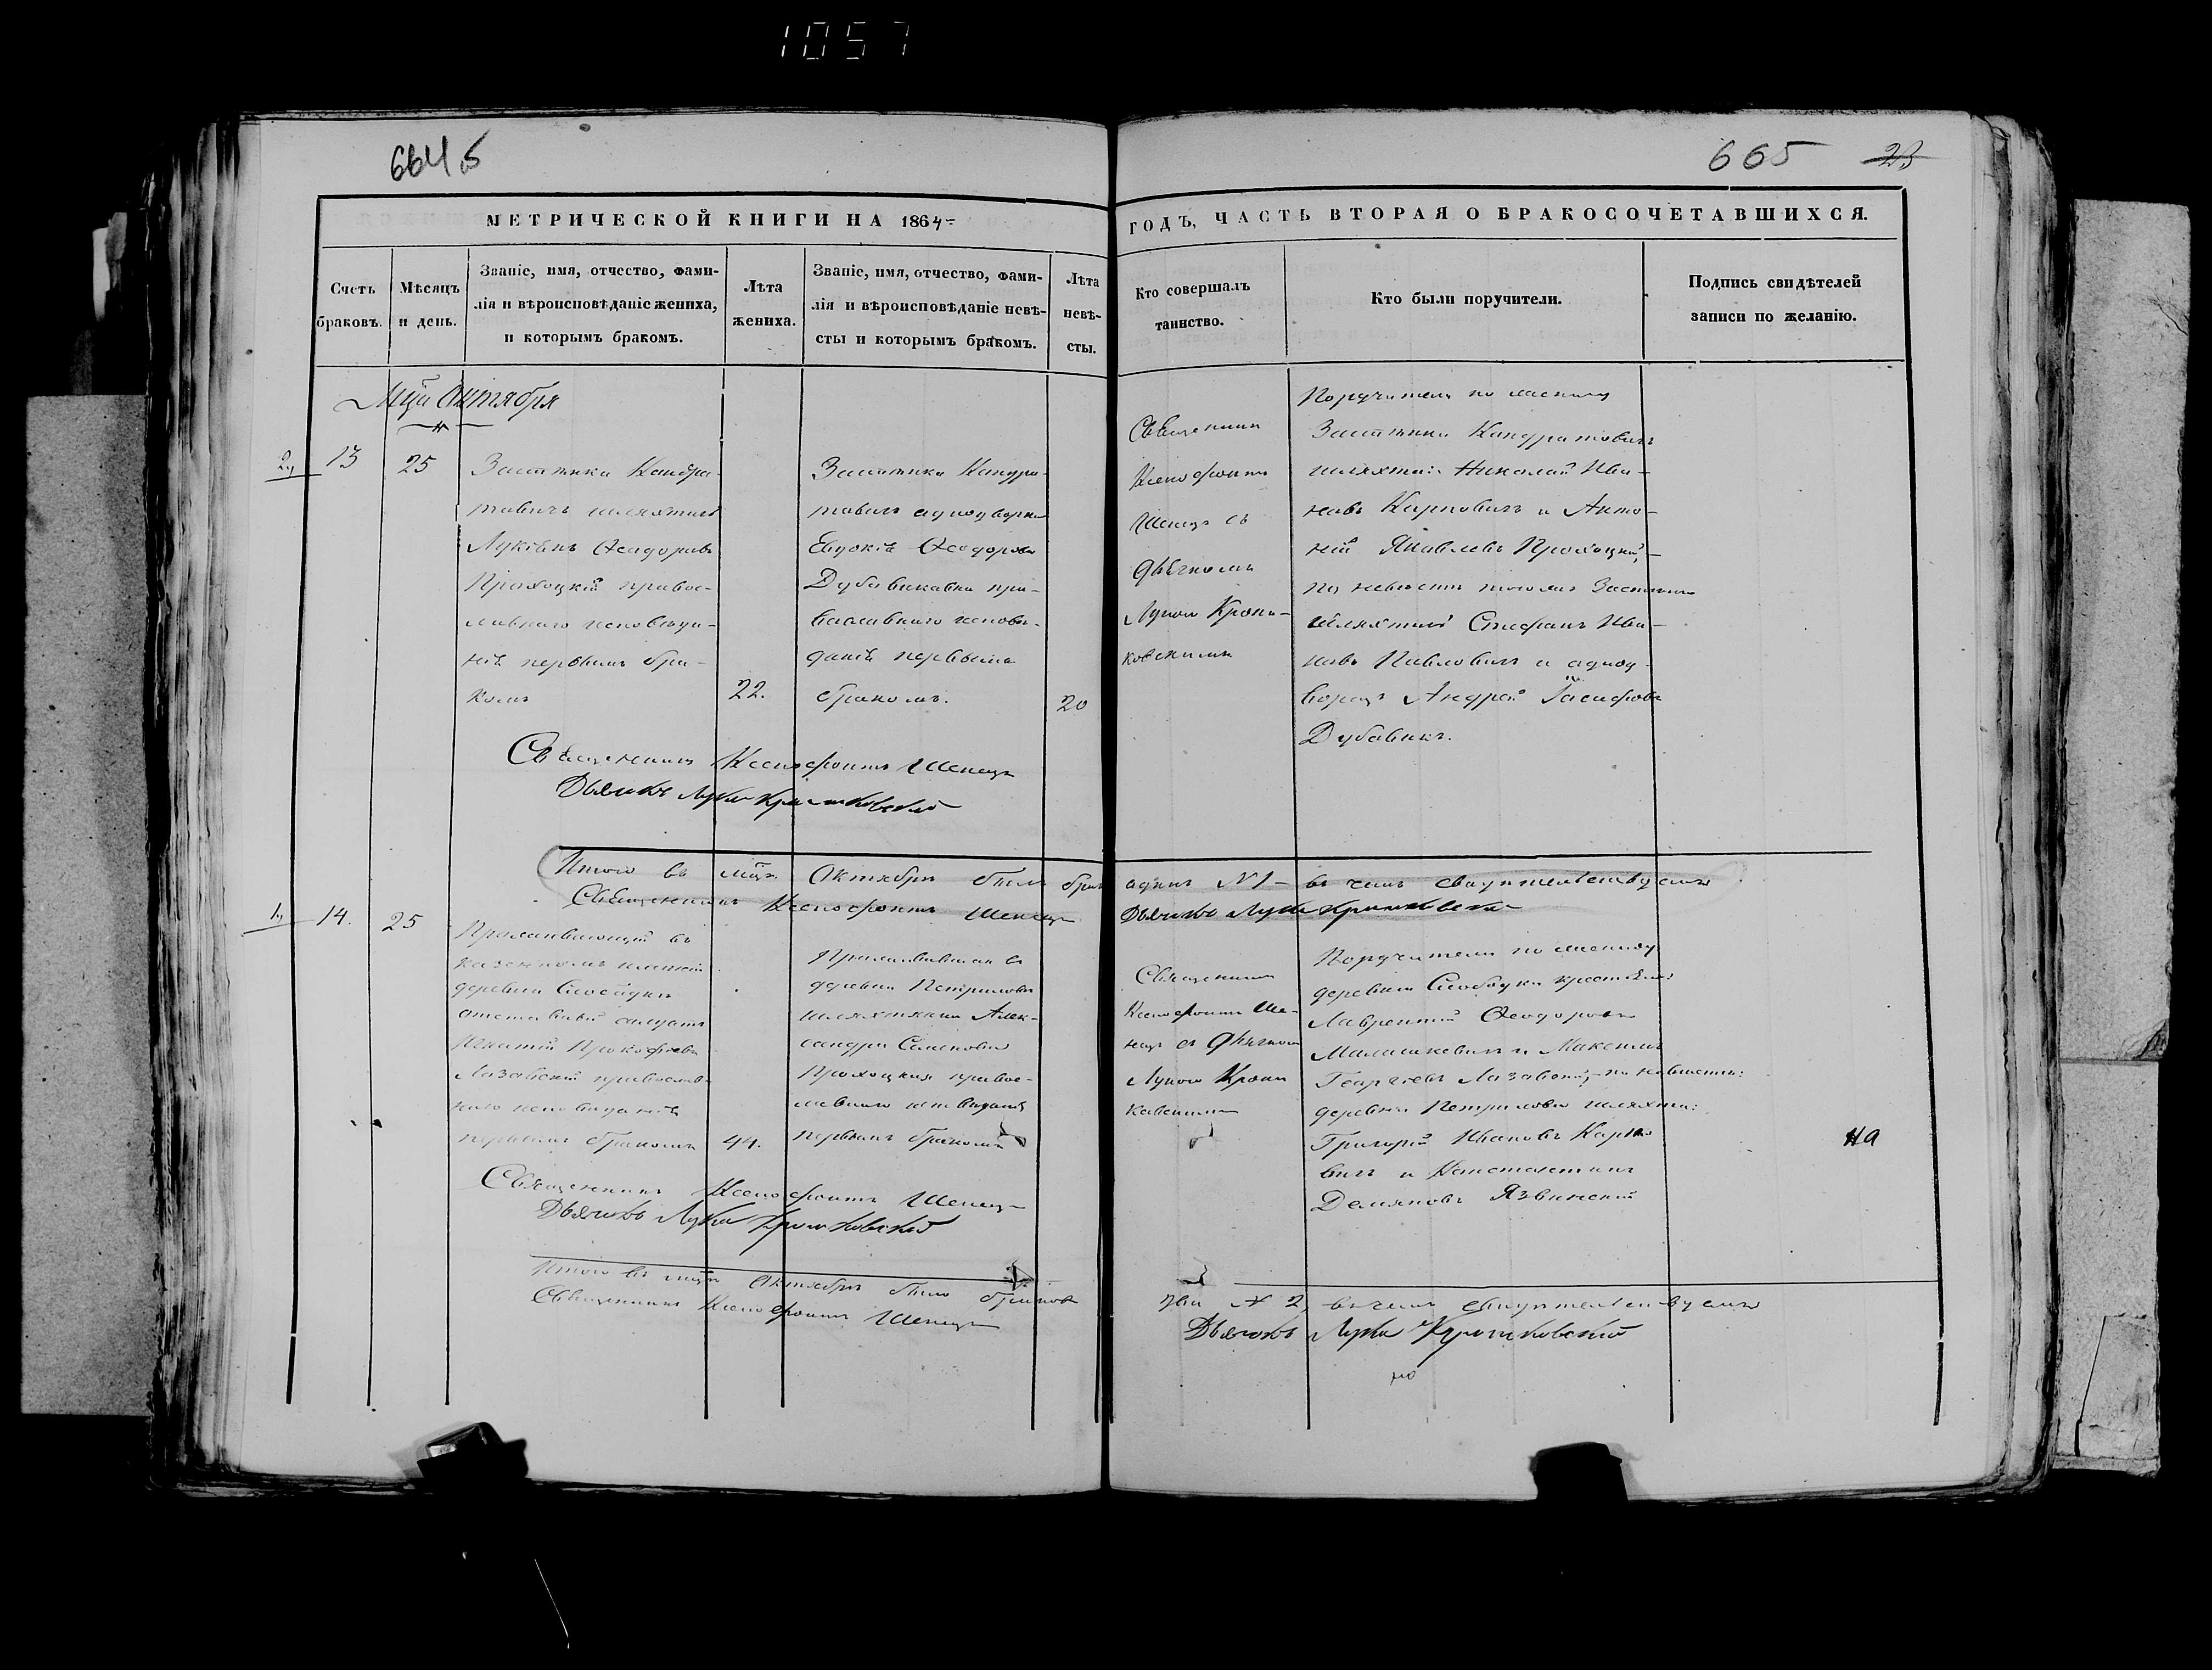 1057
664.5
665 23
МЕТРИЧЕСКОЙ КНИГИ НА 1864
ГОДЪ, ЧАСТЬ ВТОРАЯ О БРАКОСОЧЕТАВШИХСЯ.
Счетъ
браковъ.
Мѣсяцъ
и день.
Званіе, имя, отчество, фами-
лія и вѣроисповѣданіе жениха,
и которымъ бракомъ.
Лѣта
жениха.
Званіе, имя, отчество, фами-
лія и вѣроисповѣданіе невѣ-
сты и которымъ бракомъ.
Лѣта
невѣ-
сты.
Кто совершалъ
таинство.
Кто были поручители.
Подпись свидѣтелей
записи по желанію.
Октября
2
13
25
Застѣнка Кандра-
товичъ шляхтичъ
Ѳеодоровъ
Прохоцкій правос-
лавнаго исповѣда-
нія первымъ бра-
комъ
22.
Застѣнка Кандра-
товичъ однодворка
Евдокія Ѳеодорова
Дубавикавна пра-
вославнаго исповѣ-
данія первымъ
бракомъ.
20
Священникъ
Ксенофонтъ
Шенецъ съ
дьячкомъ
Лукою
Поручители по жениху
Застѣнка Кандратовичъ
шляхтичи Николай Ива-
новъ Карповичъ и Анто-
ній Яковлевъ Прохоцкій,
по невѣстѣ Застѣнка
шляхтичъ Стефанъ Ива-
новъ Павловичъ и однод-
ворецъ Андрей
Дубавикъ.
Священникъ Ксенофонтъ Шенецъ
Дьячокъ Лука
Итого въ Октябрѣ былъ бракъ одинъ №1 въ чемъ свидѣтельствуемъ
Священникъ Ксенофонтъ Шенецъ Дьячокъ Лука
1
14.
25
Проживающій въ
казенномъ имѣніи
деревни Слободки
отставный солдатъ
Игнатій Прокофіевъ
Лазавскій православ-
наго исповѣданія
первымъ бракомъ
44.
Проживавшая въ
деревни Петрилова
шляхтянка Алек-
сандра Семенова
Прохоцкая правос-
лавнаго исповѣданія
первымъ бракомъ
Священникъ
Ксенофонтъ Ше-
нецъ съ дьячкомъ
Лукою
Поручители по жениху
деревни Слободки крестьяне
Лаврентій Ѳеодоровъ
Малашкевичъ и Максимъ
Георгіевъ Лазавскій, по невѣстѣ:
деревни Петрилова шляхти:
Григорій Ивановъ Карпо
вичъ и Константинъ
Демяновъ Язвинскій
на
Священникъ Ксенофонтъ Шенецъ
Дьячокъ Лука
Итого въ Октябрѣ было браковъ два №2, въ чемъ свидѣтельствуемъ
Священникъ Ксенофонтъ Шенецъ Дьячокъ Лука